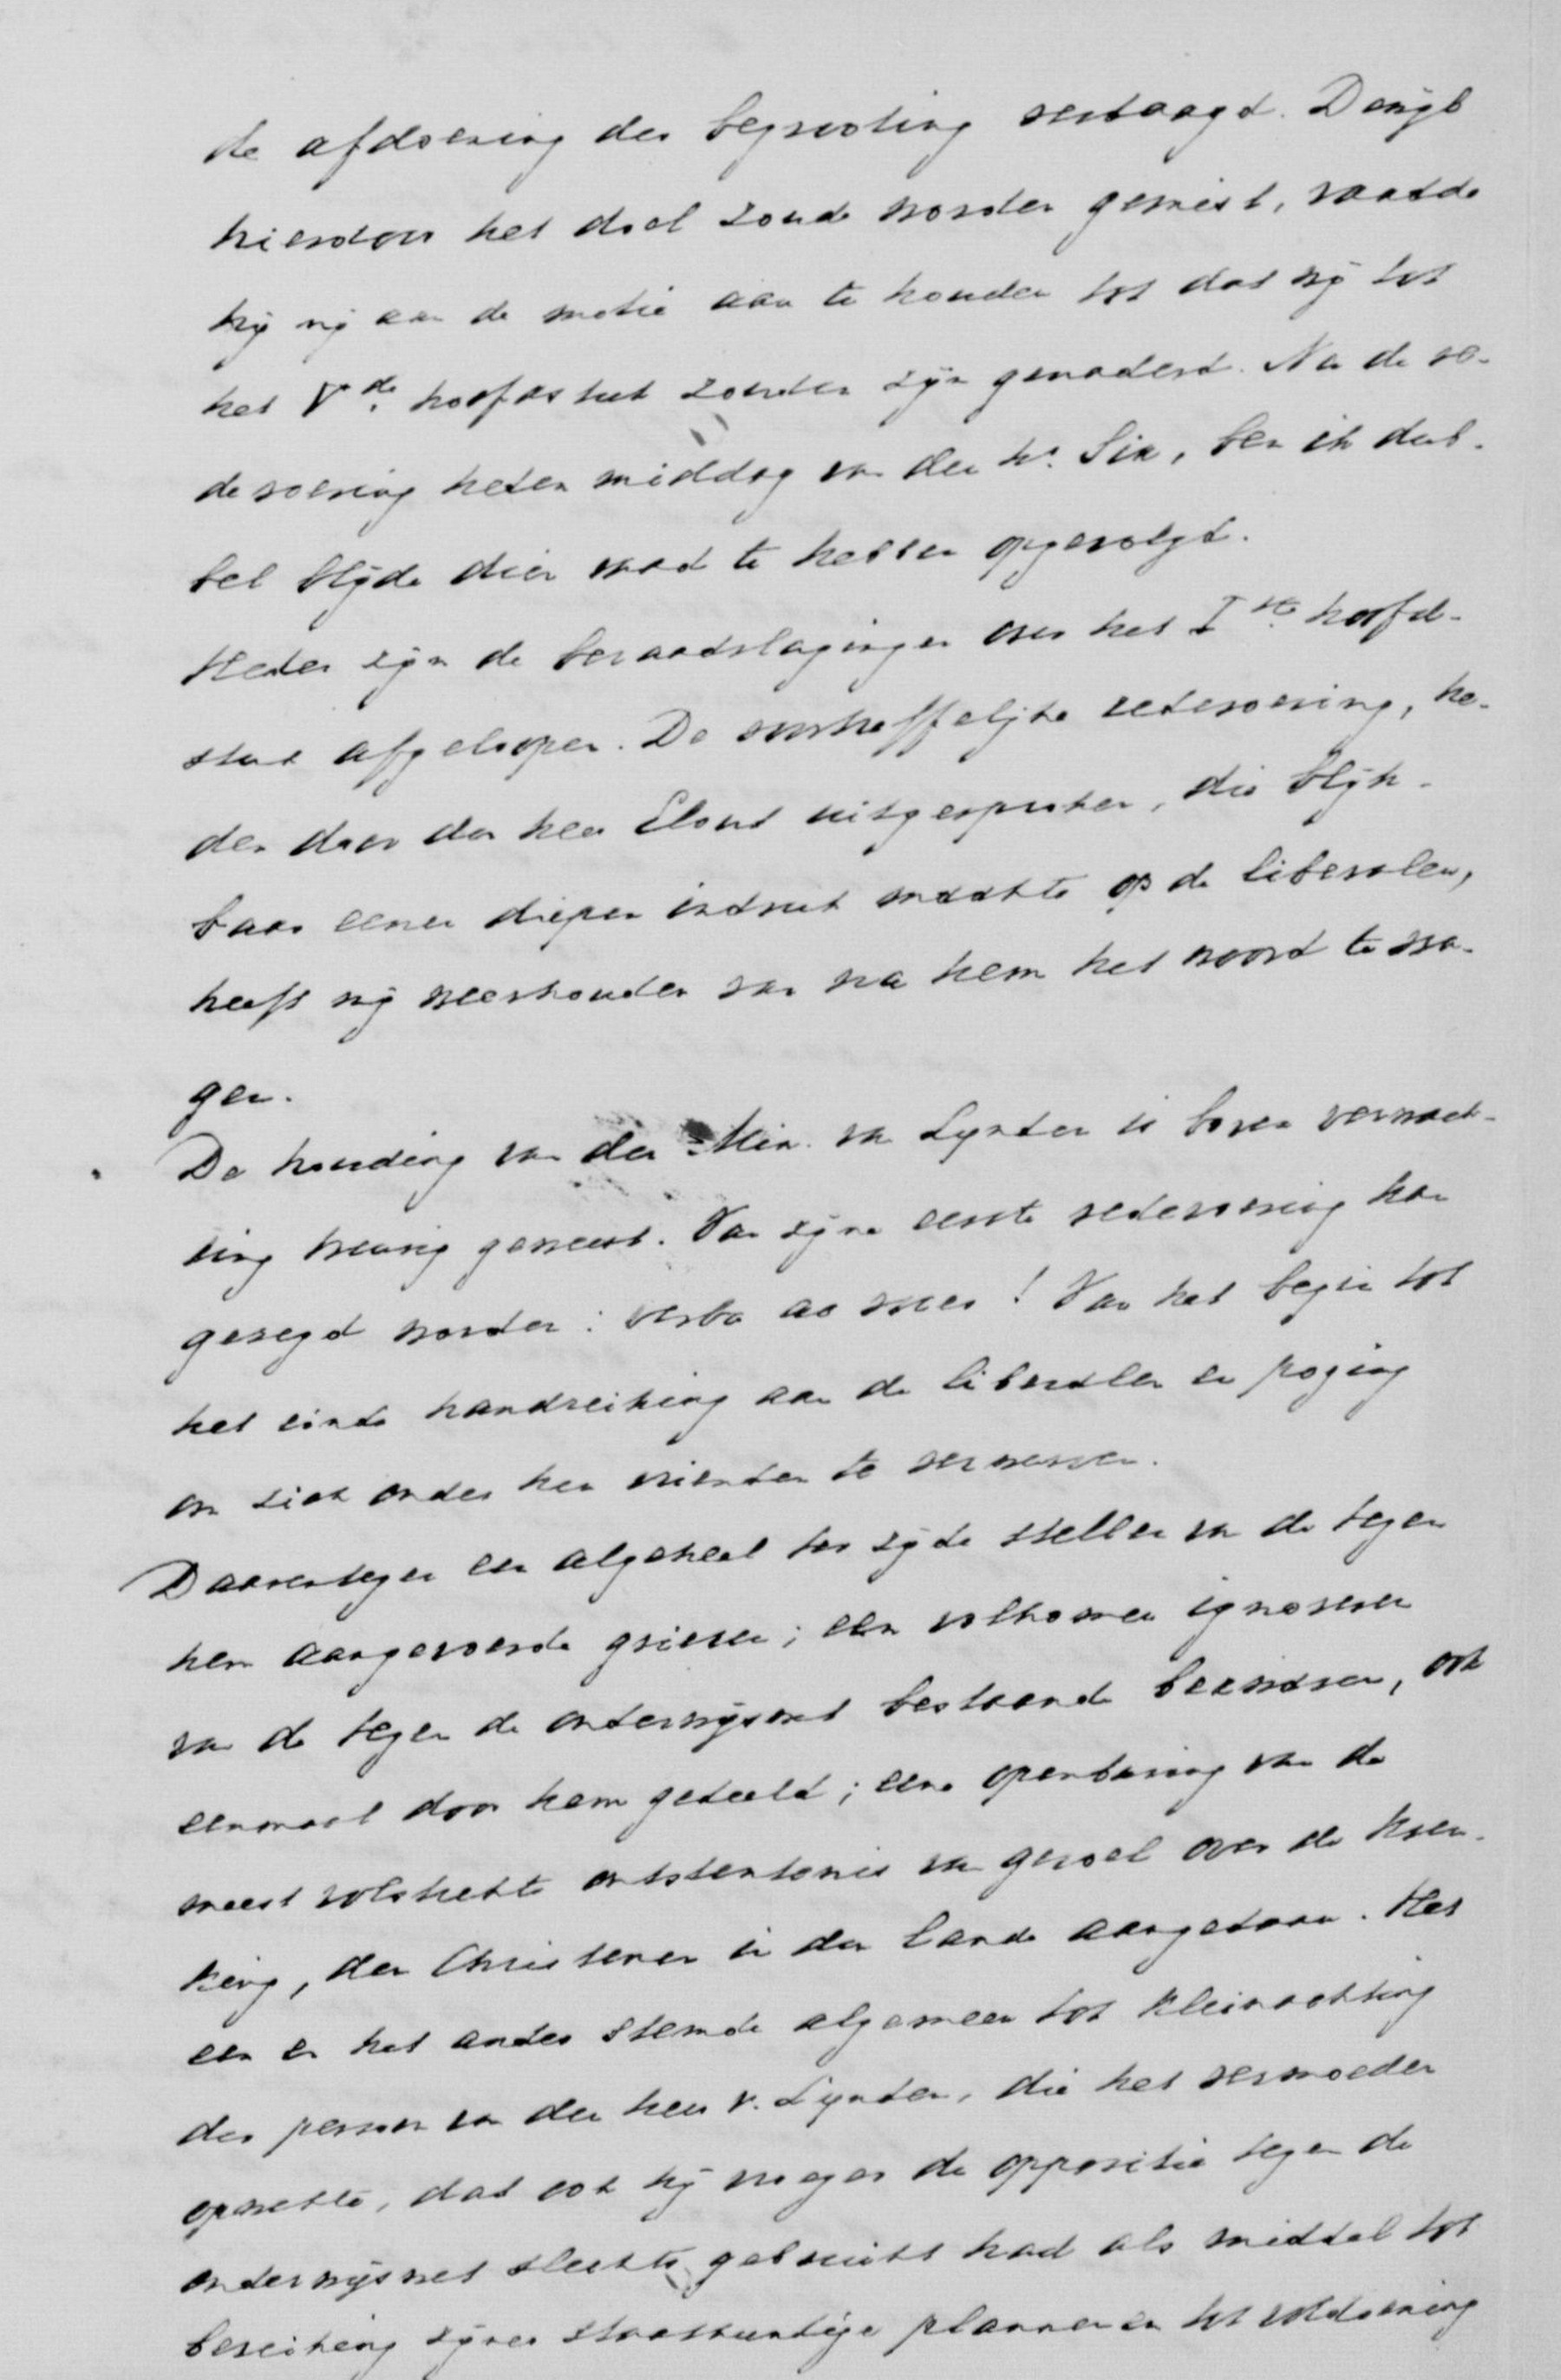 de afdoening der begrooting vertraagd. Dewijl
hierdoor het doel zoude worden gemist, raadde
hij mij aan de motie aan te houden tot dat wij tot
het Vde. hoofdstuk zouden zijn genaderd. Na de re-
devoering heden middag van den hr. Six, ben ik dub-
bel blijde dien raad te hebben opgevolgd.
Heden zijn de beraadslagingen over het Iste. hoofd-
stuk afgeloopen. De voortreffelijke redevoering, he-
den door den heer Elout uitgesproken, die blijk-
baar eenen diepen indruk maakte op de liberalen,
heeft mij weerhouden van na hem het woord te vra-
gen.
De houding van den Min. van Lynden is boven verwach-
ting treurig geweest. Van zijne eerste redevoering kan
gezegd worden: verba ac voces! Van het begin tot
het einde handreiking aan de liberalen en poging
om zich onder hen vrienden te verwerven.
Daarentegen een algeheel ter zijde stellen van de tegen
hem aangevoerde grieven; een volkomen ignoreren
van de tegen de onderwijswet bestaande bezwaren, ook
eenmaal door hem gedeeld; eene openbaring van de
meest volstrekte ontstentenis van gevoel over de kren-
king, den Christenen in den lande aangedaan. Het
een en het ander stemde algemeen tot kleinachting
des persoon van den heer v. Lynden, die het vermoeden
opwekte, dat ook hij vroeger de oppositie tegen de
onderwijswet slechts gebruikt had als middel tot
bereiking zijner staatkundige plannen en tot voldoening